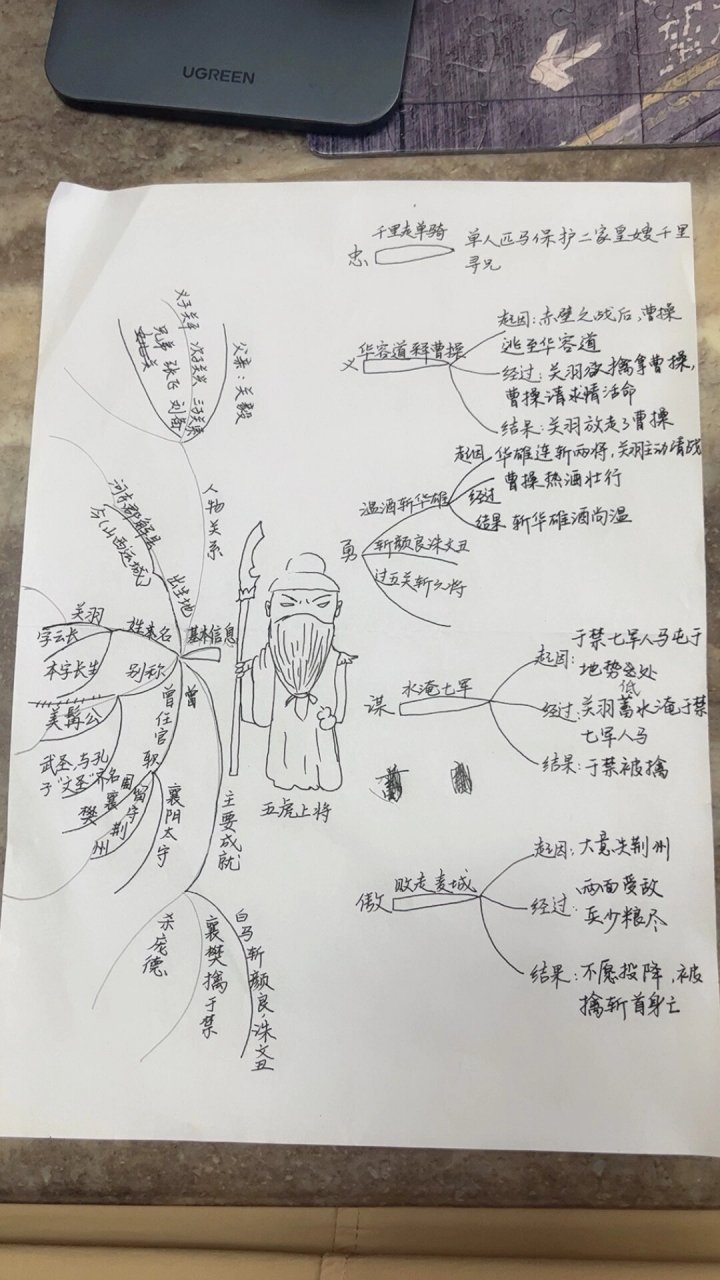 UGREEN
忠
千里走单骑
单人匹马保护二家皇嫂千里
寻兄
义
华容道释曹操
起因:赤壁之战后,曹操
逃至华容道
经过:关羽欲擒拿曹操,
曹操请求情活命
结果:关羽放走了曹操
勇
温酒斩华雄
起因 华雄连斩两将,关羽主动请战
经过 曹操热酒壮行
结果 斩华雄酒尚温
斩颜良诛文丑
过五关斩六将
谋
水淹七军
起因:于禁七军人马屯于
地势低处
经过:关羽蓄水淹于禁
七军人马
结果:于禁被擒
傲
败走麦城
起因:大意失荆州
经过:两面受敌
兵少粮尽
结果:不愿投降,被
擒斩首身亡
五虎上将
基本信息
人物关系
父亲:关毅
义子关平
兄弟 张飞 刘备
出生地
河东郡解县
今(山西运城)
姓本名
关羽
字云长
本字长生
别称
美髯公
武圣,与孔
子“文圣”齐名
曾
曾任官职
襄阳太守
留守荆州
主要成就
白马斩颜良,诛文丑
襄樊擒于禁
杀庞德